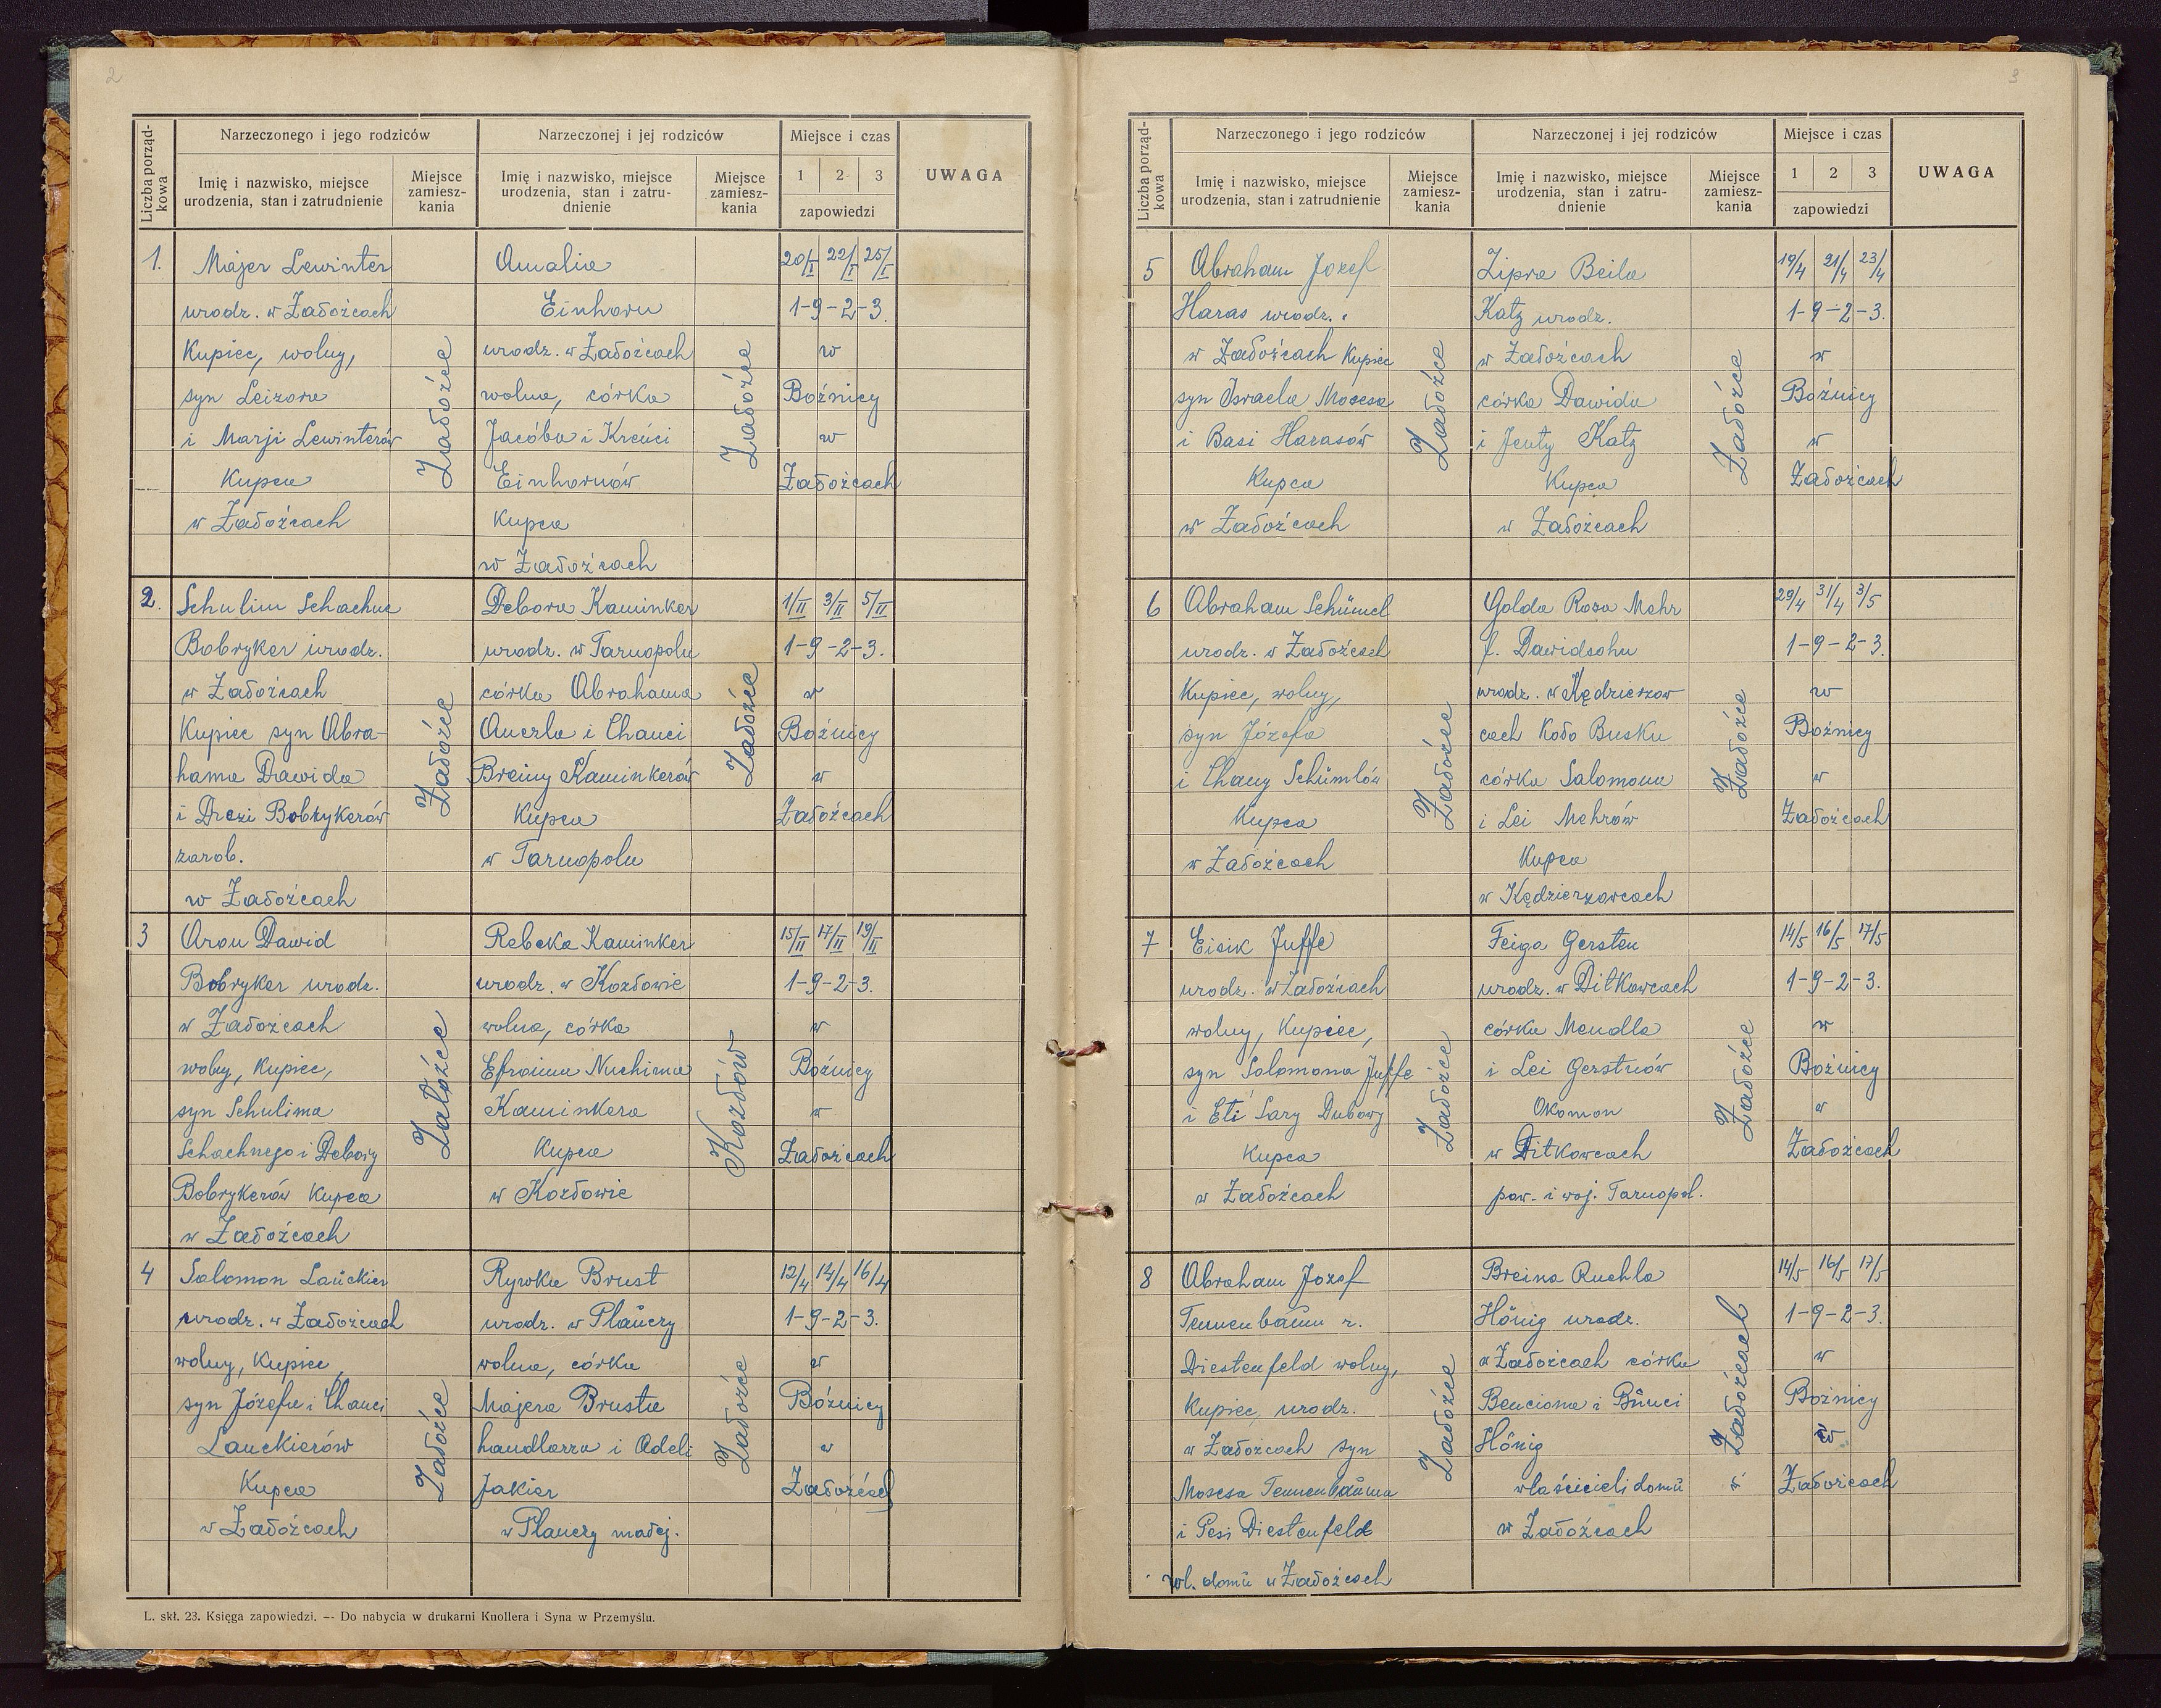 2
Liczba porząd-
kowa
Narzeczonego i jego rodziców
Narzeczonej i jej rodziców
Miejsce i czas
UWAGA
Imię i nazwisko, miejsce
urodzenia, stan i zatrudnienie
Miejsce
zamiesz-
kania
Imię i nazwisko, miejsce
urodzenia, stan i zatru-
dnienie
Miejsce
zamiesz-
kania
1 2 3
zapowiedzi
1.
Majer Lewinter
urodz. w Załoźcach
Kupiec, wolny,
syn Leizora
i Marji Lewinterów
Kupca
w Załoźcach
Załoźce
Amalia
Einhorn
urodz. w Załoźcach
wolna, córka
Jacóba i Kreńci
Einhornów
Kupca
w Załoźcach
Załoźce
20/I 22/I 25/I
1-9-2-3.
w
Bożnicy
w
Załoźcach
2.
Schulim Schachne
Bobryker urodz.
w Załoźcach
Kupiec syn Abra-
hama Dawida
i Drezi Bobrykerów
zarob.
w Załoźcach
Załoźce
Debora Kaminker
urodz. w Tarnopolu
córka Abrahama
Anczla i Chanci
Breiny Kaminkerów
Kupca
w Tarnopolu
Załoźce
1/II 3/II 5/II
1-9-2-3.
w
Bożnicy
w
Załoźcach
3
Aron Dawid
Bobryker urodz.
w Załoźcach
wolny, Kupiec,
syn Schulima
Schachnego i Debory
Bobrykerów Kupca
w Załoźcach
Załoźce
Rebeka Kaminker
urodz. w Kozłowie
wolna, córka
Efroima Nuchima
Kaminkera
Kupca
w Kozłowie
Kozłów
15/II 17/II 19/II
1-9-2-3.
w
Bożnicy
w
Załoźcach
4
Salomon Laŭckier
urodz. w Załoźcach
wolny, Kupiec,
syn Józefa i Chanci
Lauckierów
Kupca
w Załoźcach
Załoźce
Rywka Brust
urodz. w Plaŭczy
wolna, córka
Majera Brusta
handlarza i Adeli
Jakier
w Plauczy małej.
Załoźce
12/4 14/4 16/4
1-9-2-3.
w
Bóżnicy
w
Załoźcach
L. skł. 23. Księga zapowiedzi. — Do nabycia w drukarni Knollera i Syna w Przemyślu.
3
Liczba porząd-
kowa
Narzeczonego i jego rodziców
Narzeczonej i jej rodziców
Miejsce i czas
UWAGA
Imię i nazwisko, miejsce
urodzenia, stan i zatrudnienie
Miejsce
zamiesz-
kania
Imię i nazwisko, miejsce
urodzenia, stan i zatru-
dnienie
Miejsce
zamiesz-
kania
1 2 3
zapowiedzi
5
Abraham Jozef
Haras urodz.
w Załoźcach Kupiec
syn Israela Mosesa
i Basi Harasów
Kupca
w Załoźcach
Załoźce
Zipra Beila
Katz urodz.
w Załoźcach
córka Dawida
i Jenty Katz
Kupca
w Załoźcach
Załoźce
19/4 21/4 23/4
1-9-2-3.
w
Bożnicy
w
Załoźcach
6
Abraham Schüml
urodz. w Załoźcach
Kupiec, wolny,
syn Józefa
i Chany Schümlów
Kupca
w Załoźcach
Załoźce
Golda Roza Mehr
f. Dawidsohn
urodz. w Kędzierzow
cach Koło Busku
córka Salomona
i Lei Mehrów
Kupca
w Kędzierzowcach
Załoźce
29/4 31/4 3/5
1-9-2-3.
w
Bożnicy
w
Załoźcach
7
Eisik Juffe
urodz. w Załoźcach
wolny, Kupiec,
syn Salomona Juffe
i Eti Sary Dubowy
Kupca
w Załoźcach
Załoźce
Feiga Gersten
urodz. w Ditkowcach
córka Mendla
i Lei Gerstnów
Okomon
w Ditkowcach
pow. i woj. Tarnopol.
Załoźce
14/5 16/5 17/5
1-9-2-3.
w
Bożnicy
w
Załoźcach
8
Abraham Jozef
Tennenbaŭm r.
Diestenfeld wolny,
Kupiec, urodz.
w Załoźcach syn
Mosesa Tennenbaŭma
i Pesi Diestenfeld
wł. domŭ w Załoźcach
Załoźce
Breina Ruchla
Hönig urodz.
w Załoźcach córka
Benciona i Bŭnci
Hönig
właścicieli domŭ
w Załoźcach
w Załoźcach
14/5 16/5 17/5
1-9-2-3.
w
Bożnicy
w
Załoźcach